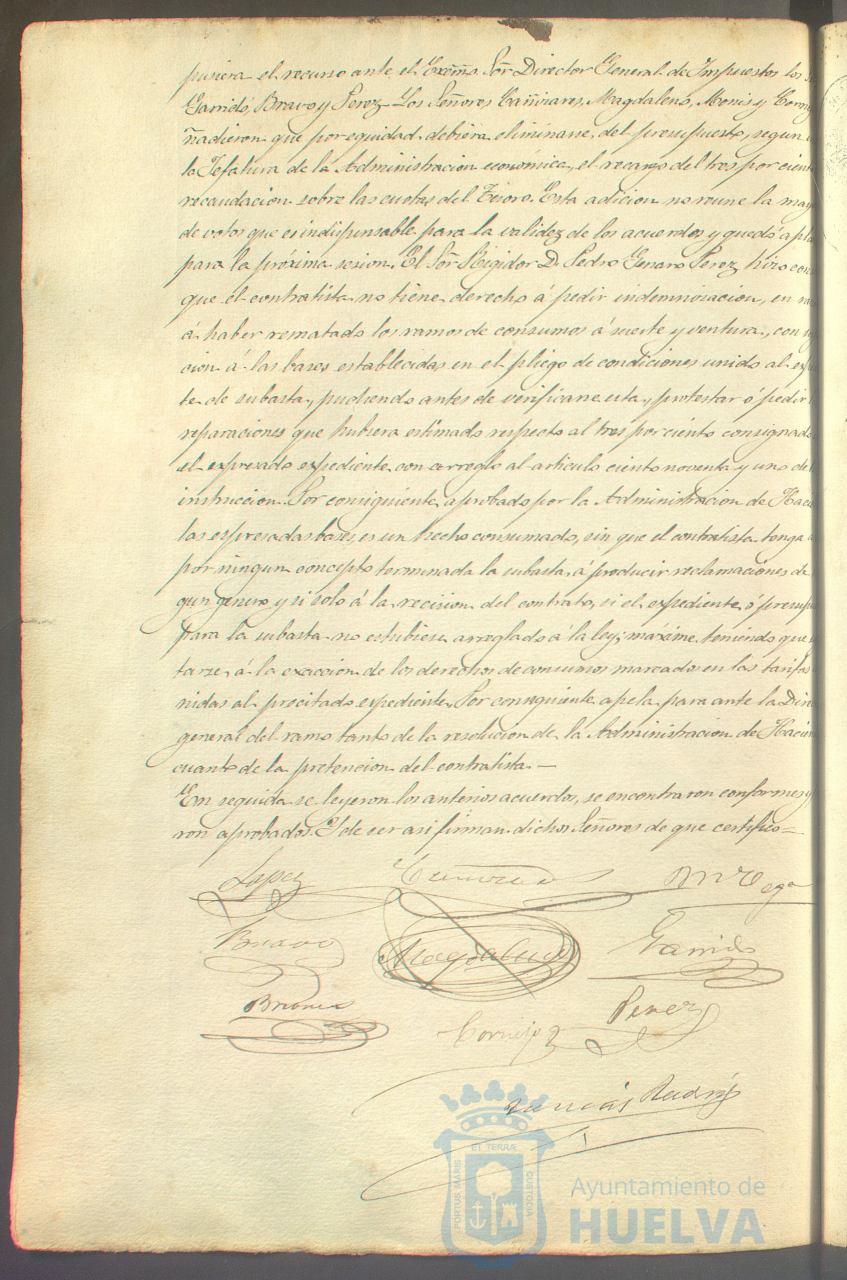 pusiera el recurso ante el Excmo. Sor. Director General de Impuestos los
Garrido, Bravo y Perez. Los Señores Cañizares, Magdaleno, Monis y Corne
ñadieron que por equidad debiera eliminarse, del presupuesto, segun
la Jefatura de la Administracion económica, el recargo del tres por cient
recaudacion sobre las cuotas del Tesoro. Esta adicion no reune la may
de votos que es indispensable para la validez de los acuerdos y quedó apla
para la próxima sesion. El Sor. Regidor D. Pedro Genaro Perez, hizo con
que el contratista no tiene derecho á pedir indemnizacion, en
á haber rematado los ramos de consumos á suerte y ventura, con
cion á las bases establecidas en el pliego de condiciones unido al exp
te de subasta, pudiendo antes de verificarse esta, protestar ó pedir
reparaciones que hubiera estimado respecto al tres por ciento consignado
el expresado expediente con arreglo al articulo ciento noventa y uno de
instruccion. Por consiguiente, aprobado por la Administracion de Haci
las expresadas bases es un hecho consumado, sin que el contratista tenga
por ningun concepto terminada la subasta, á producir reclamaciones de
gun genero y si solo á la recision del contrato, si el expediente, ó presup
para la subasta no estubiese arreglado á la ley; máxime teniendo que
tarse, á la exaccion de los derechos de consumos marcados en las tarifas
nidas al precitado expediente. Por consiguiente apela para ante la Dire
general del ramo tanto de la resolucion de la Administracion de Hacien
cuanto de la pretencion del contratista.—
En seguida se leyeron los anterios acuerdos, se encontraron conformes y
ron aprobados. Y de ser asi firman dichos Señores de que certifico=
Lopez
Bravo Magdaleno Garrido
Cornejo Perez
ET TERRÆ
PORTUS MARIS CUSTODIA
Ayuntamiento de
HUELVA